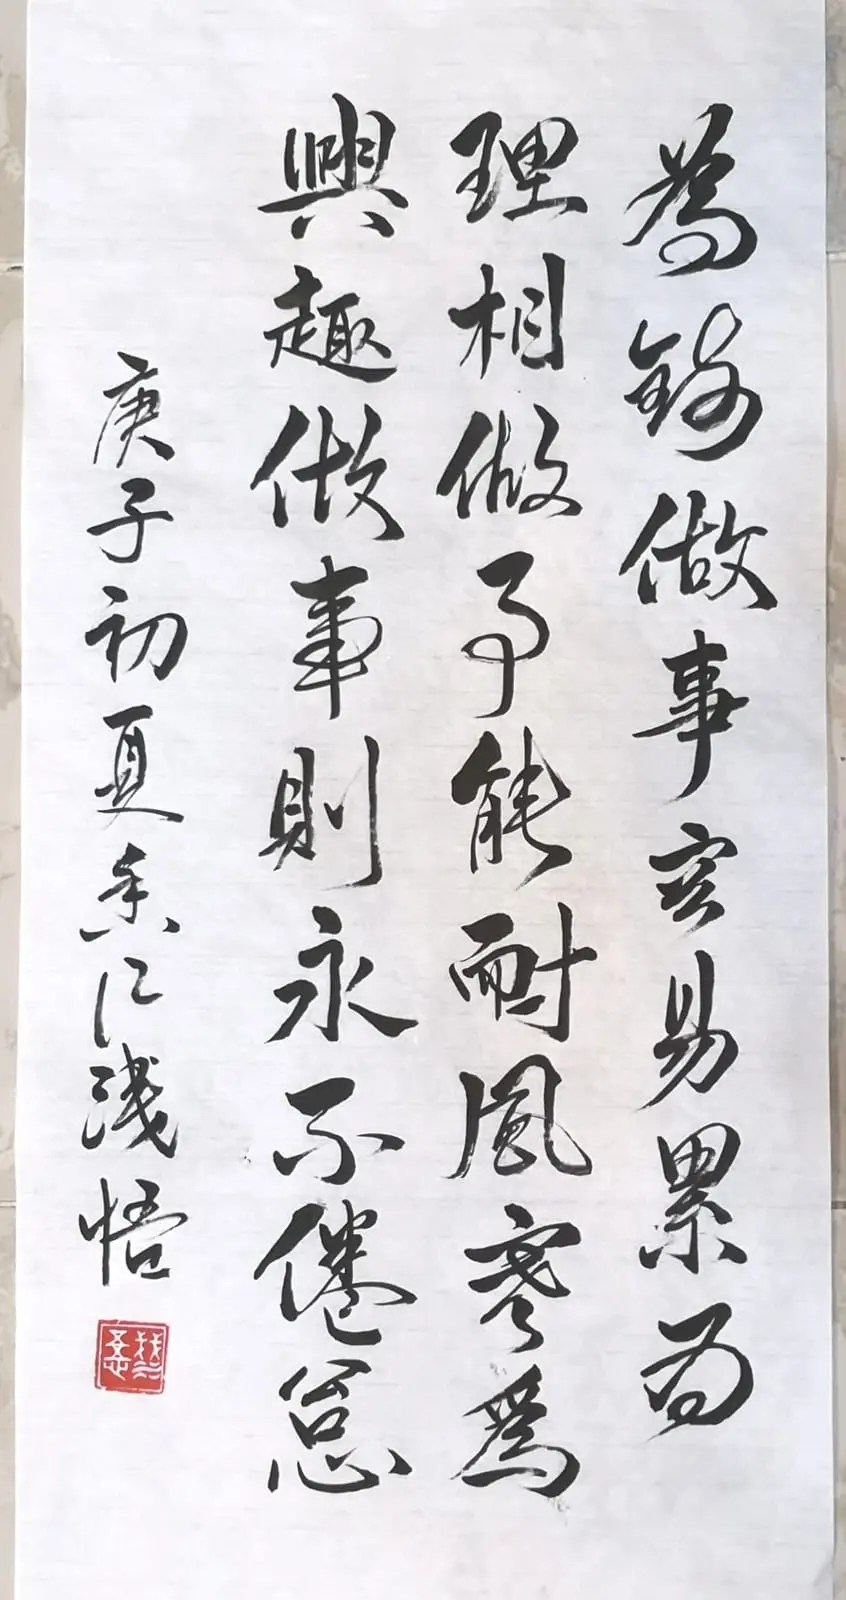 為錢做事容易累為
理相做事能耐風寒為
興趣做事則永不倦怠
庚子初夏 浅悟